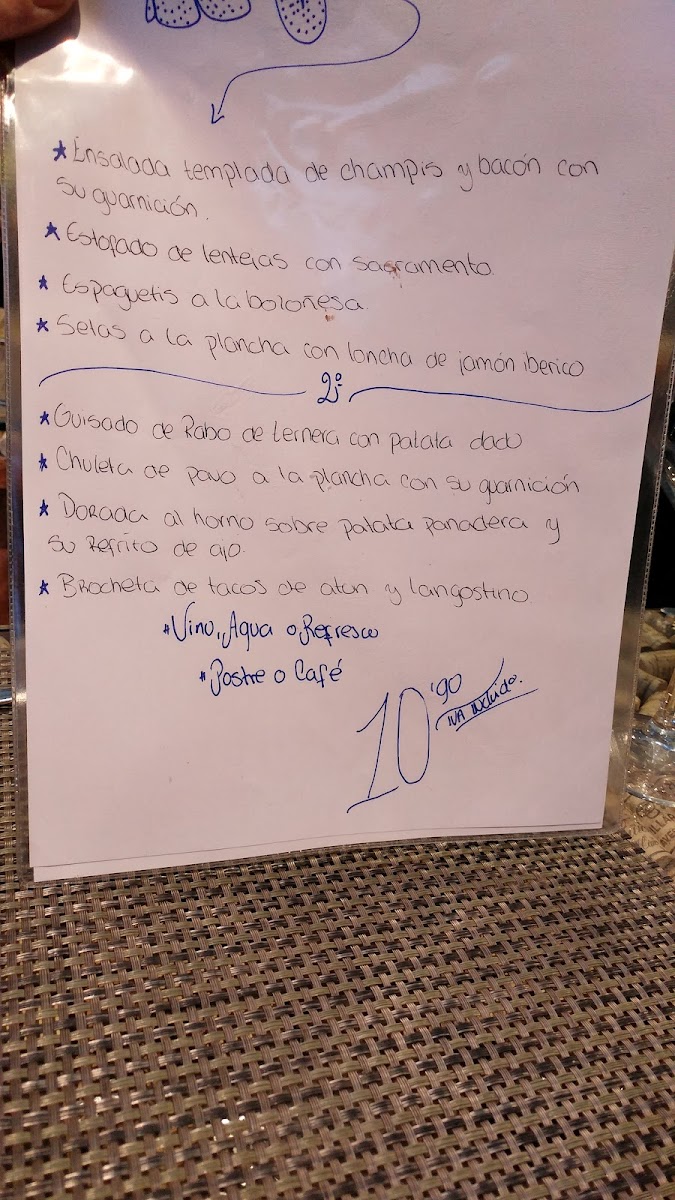 ★ Ensalada templada de champis y bacón con
su guarnición.
★ Estofado de lentejas con sacramento.
★ Espaguetis a la boloñesa.
★ Setas a la plancha con loncha de jamón iberico
2º-
★ Guisado de Rabo de ternera con patata dado
★ Chuleta de pavo a la plancha con su guarnición
★ Dorada al horno sobre patata panadera y
su Refrito de ajo.
★ Brocheta de tacos de atun y langostino.
* Vino, Agua o Refresco
* Postre o Café
10'90
IVA Incluido.